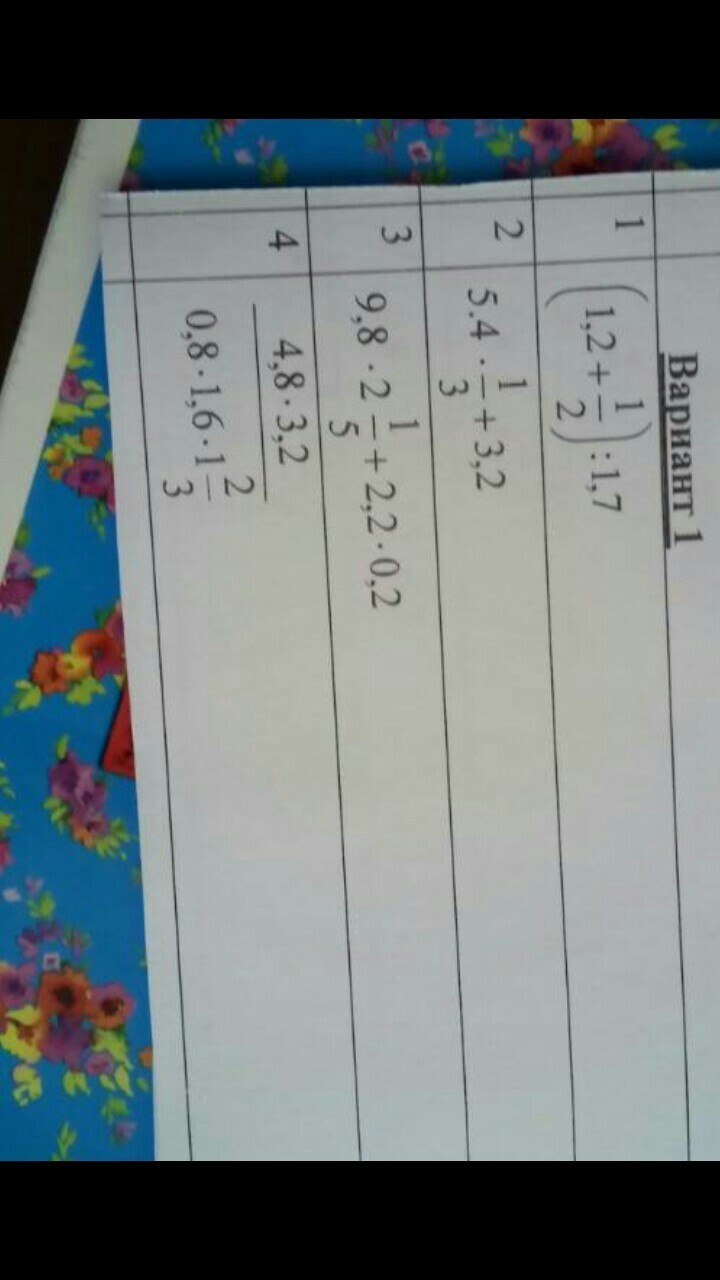 Вариант 1
1 (1,2 + 1/2) : 1,7
2 5.4 · 1/3 + 3,2
3 9,8 · 2 1/5 + 2,2 · 0,2
4 4,8 · 3,2
0,8 · 1,6 · 1 2/3